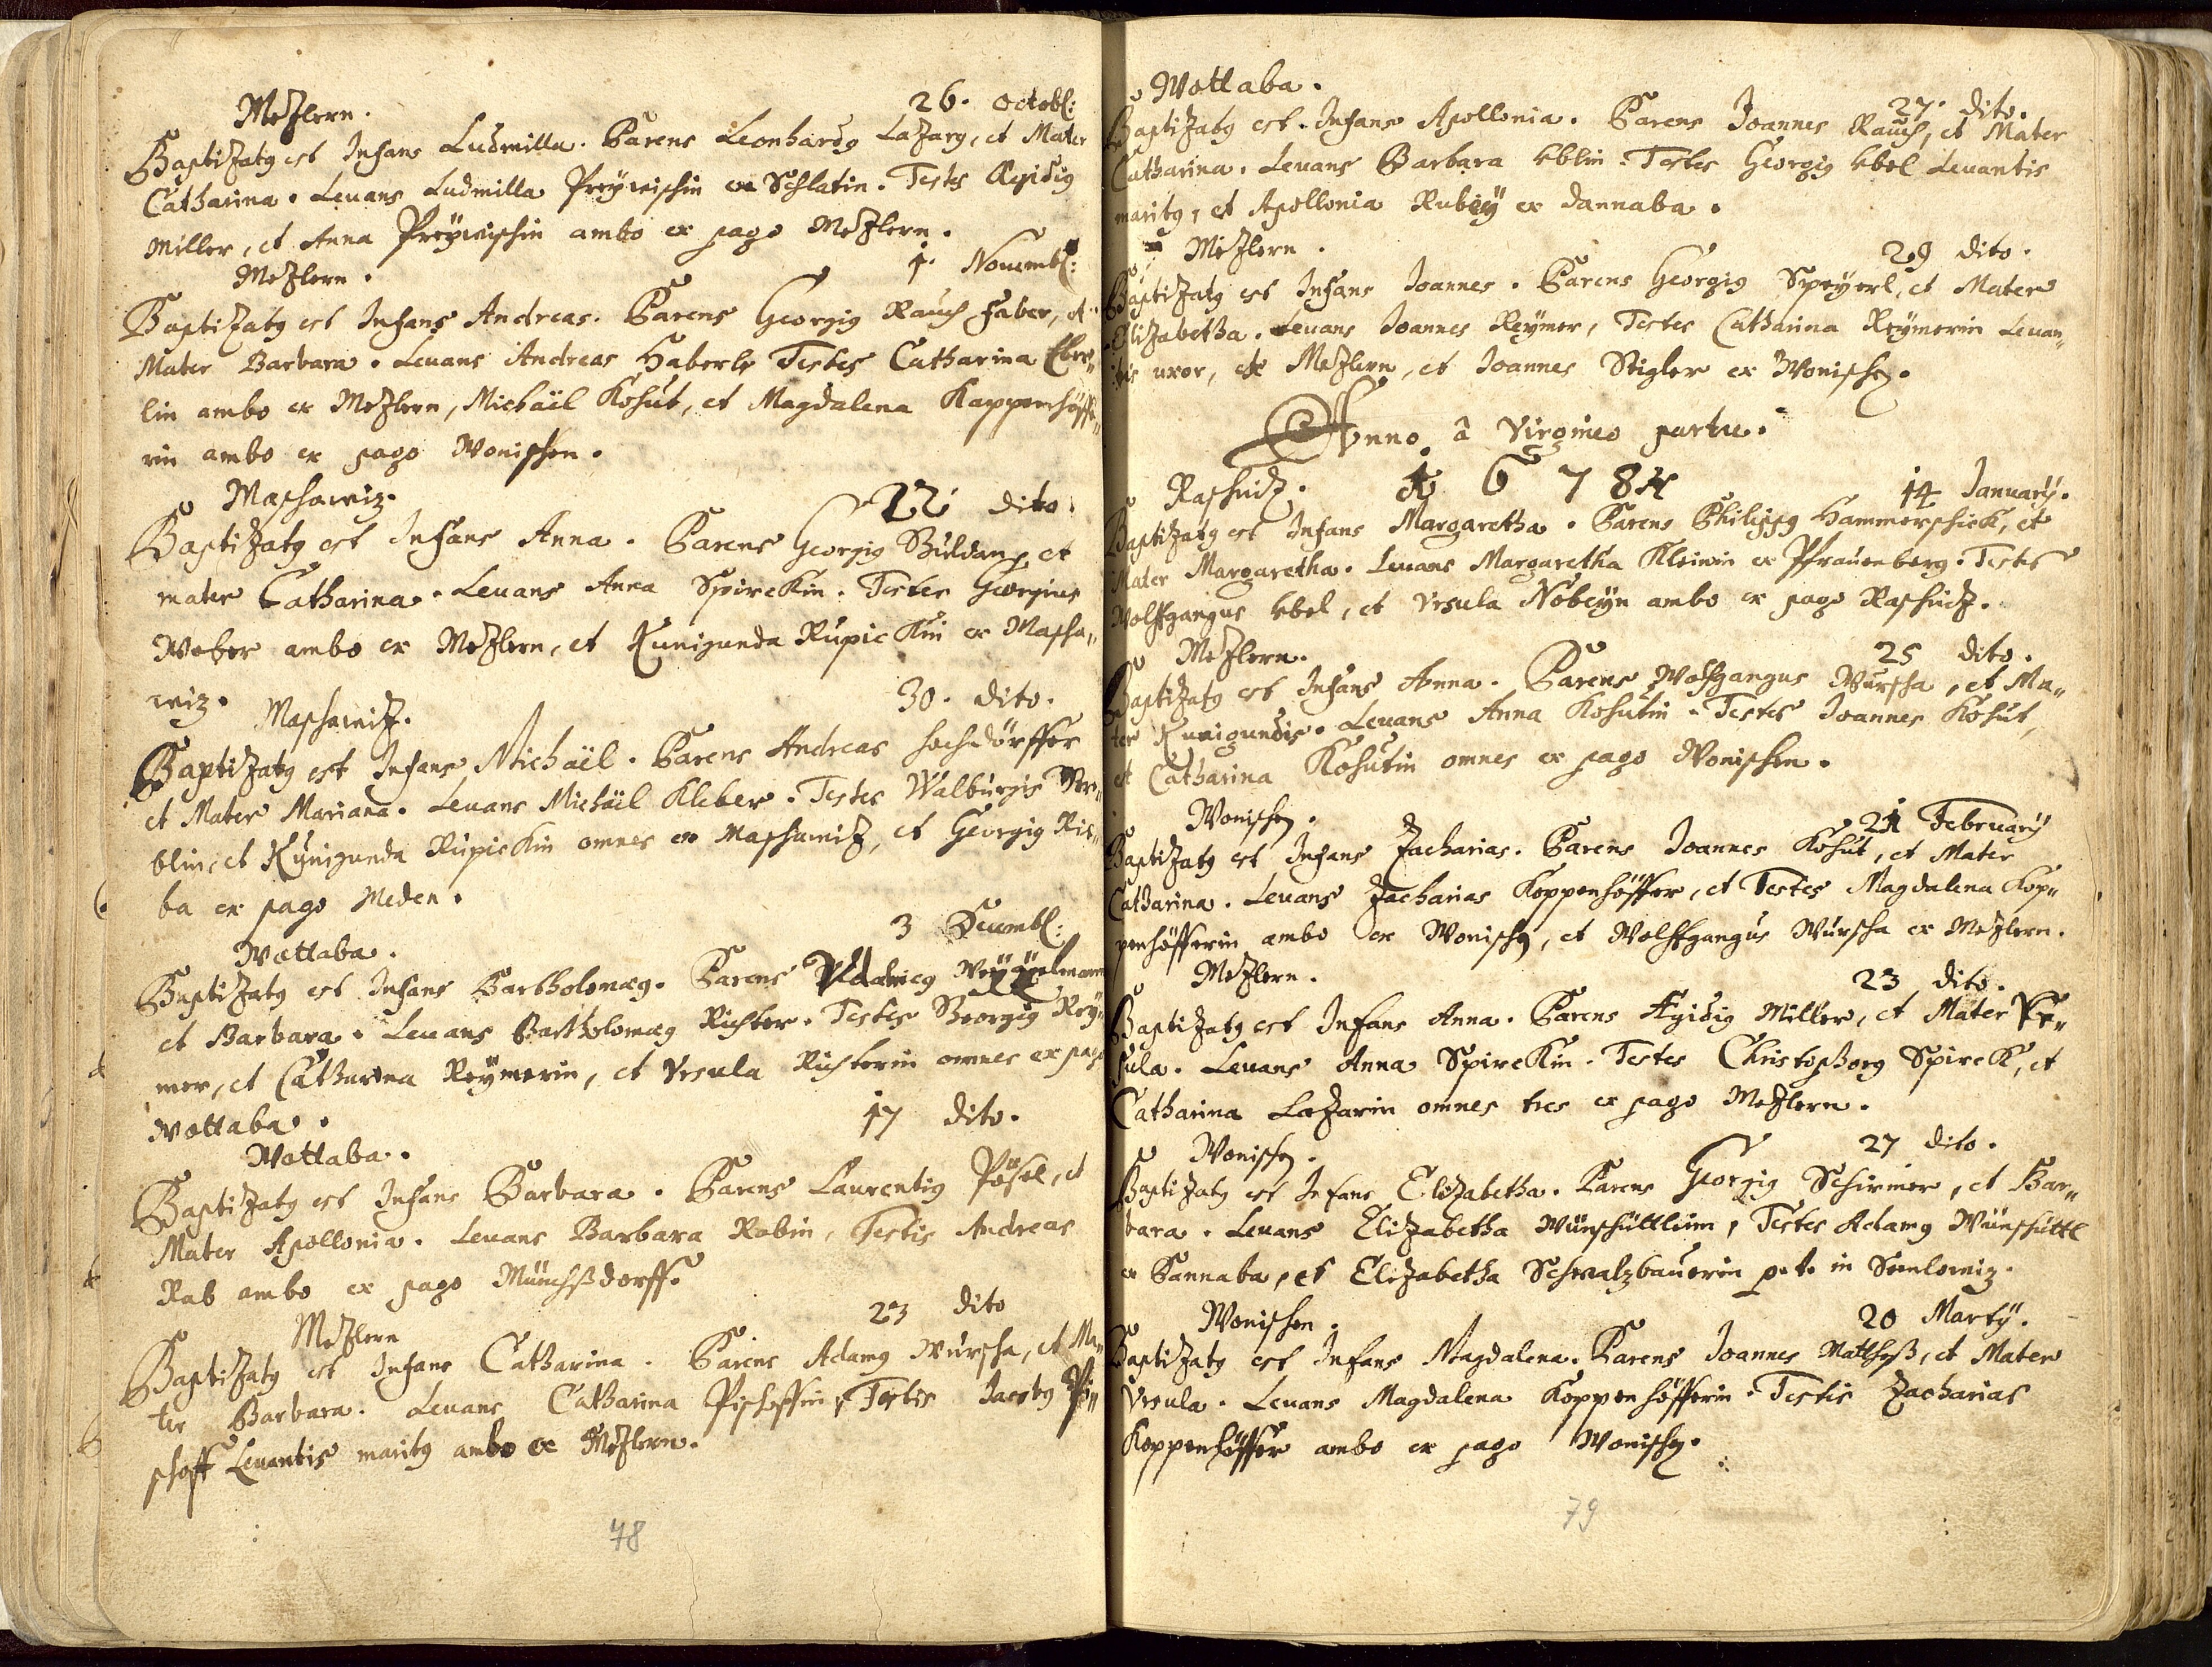 Mezlern. 26. octobr:
Baptizatq est Infans Ludmilla. Parens Leonhardq Lazarq, et Mater
Catharina. Leuans Ludmilla Preywischin ex Schlatin. Testes Aegidiq
Miller, et Anna Preywischin ambo ex pago Mezlern.
Mezlern. 1. Nouembr:
Baptizatq est Infans Andreas. Parens Georgiq Rauch faber, et
Mater Barbara. Leuans Andreas Haberle Testes Catharina Eber„
lin ambo ex Mezlern, Michäil Kohut, et Magdalena Kappenhöffe„
rin ambo ex pago Wonischen.
Maschawiz. 22 dito.
Baptizatq est Infans Anna. Parens Georgiq Buldanq et
mater Catharina. Leuans Anna Spirekin. Testes Georgius
Weber ambo ex Mezlern, et Kunigunda Rupickin ex Mascha„
wiz.
Maschawitz. 30. dito.
Baptizatq est Infans Michäil. Parens Andreas Hochdörffer
et Mater Mariana. Leuans Michäil Kleber. Testes Walburgis
blin, et Kunigunda Rupickin omnes ex Maschawitz, et Georgiq Rib„
ba ex pago Meden.
Wottaba. 3 Decembr:
Baptizatq est Infans Bartholomæq. Parens Vdalricq
et Barbara. Leuans Bartholomæq Richter. Testes Georgiq Rey„
mer, et Catharina Reymerin, et Vrsula Richterin omnes ex pago
Wottaba.
Wottaba. 17 dito.
Baptizatq est Infans Barbara. Parens Laurentiq Pösel, et
Mater Apollonia. Leuans Barbara Rabin, Testis Andreas
Rab ambo ex pago Münchßdorff.
Mezlern 23 dito
Baptizatq est Infans Catharina. Parens Adamq Wurscha, et Ma„
ter Barbara. Leuans Catharina Pischoffin, Testis Jacobq Pi„
schoff Leuantis maritq ambo ex Mezlern.
78
Wottaba. 27. dito.
Baptizatq est Infans Apollonia. Parens Joannes Rauch, et Mater
Catharina. Leuans Barbara Eblin. Testes Georgiq Ebel Leuantis
maritq, et Apollonia Rubiy ex dannaba.
Mezlern. 29 dito.
Baptizatq est Infans Joannes. Parens Georgiq Speyerl, et Mater
Elizabetha. Leuans Joannes Reymer, Testes Catharina Reymerin Leuan„
tis uxor, ex Mezlern, et Joannes Stigler ex Wonischen.
Anno à Virgineo partu.
1678
Raschnitz. 14 January.
Baptizatq est Infans Margaretha. Parens Philippq Hammerschick, et
Mater Margaretha. Leuans Margaretha Kleinin ex Pfrauenberg. Testes
Wolffgangus Ebel, et Vrsula Nobeyn ambo ex pago Raschnitz.
Mezlern. 25 dito.
Baptizatq est Infans Anna. Parens Wolfgangus Wurscha, et Ma„
ter Kunigundis. Leuans Anna Kohutin. Testes Joannes Kohut,
et Catharina Kohutin omnes ex pago Wonischen.
Wonischen. 21 February
Baptizatq est Infans Zacharias. Parens Joannes Kohut, et Mater
Catharina. Leuans Zacharias Koppenhöffer, et Testes Magdalena Kop„
penhöfferin ambo ex Wonischen, et Wolffgangus Wurscha ex Mezlern.
Mezlern. 23 dito.
Baptizatq est Infans Anna. Parens Ægidiq Miller, et Mater Vr„
sula. Leuans Anna Spirekin. Testes Christophorq Spirek, et
Catharina Lazarin omnes tres ex pago Mezlern.
Wonischen. 27 dito.
Baptizatq est Infans Elizabetha. Parens Georgiq Schirmer, et Bar„
bara. Leuans Elizabetha Wunschüttlein, Testes Adamq Wunschüttl
ex Dannaba, et Elizabetha Schwalzbauerin p. t. in Semlowiz.
Wonischen. 20 Marty.
Baptizatq est Infans Magdalena. Parens Joannes Matthess, et Mater
Vrsula. Leuans Magdalena Koppenhöfferin. Testis Zacharias
Koppenhöffer ambo ex pago Wonischen.
79